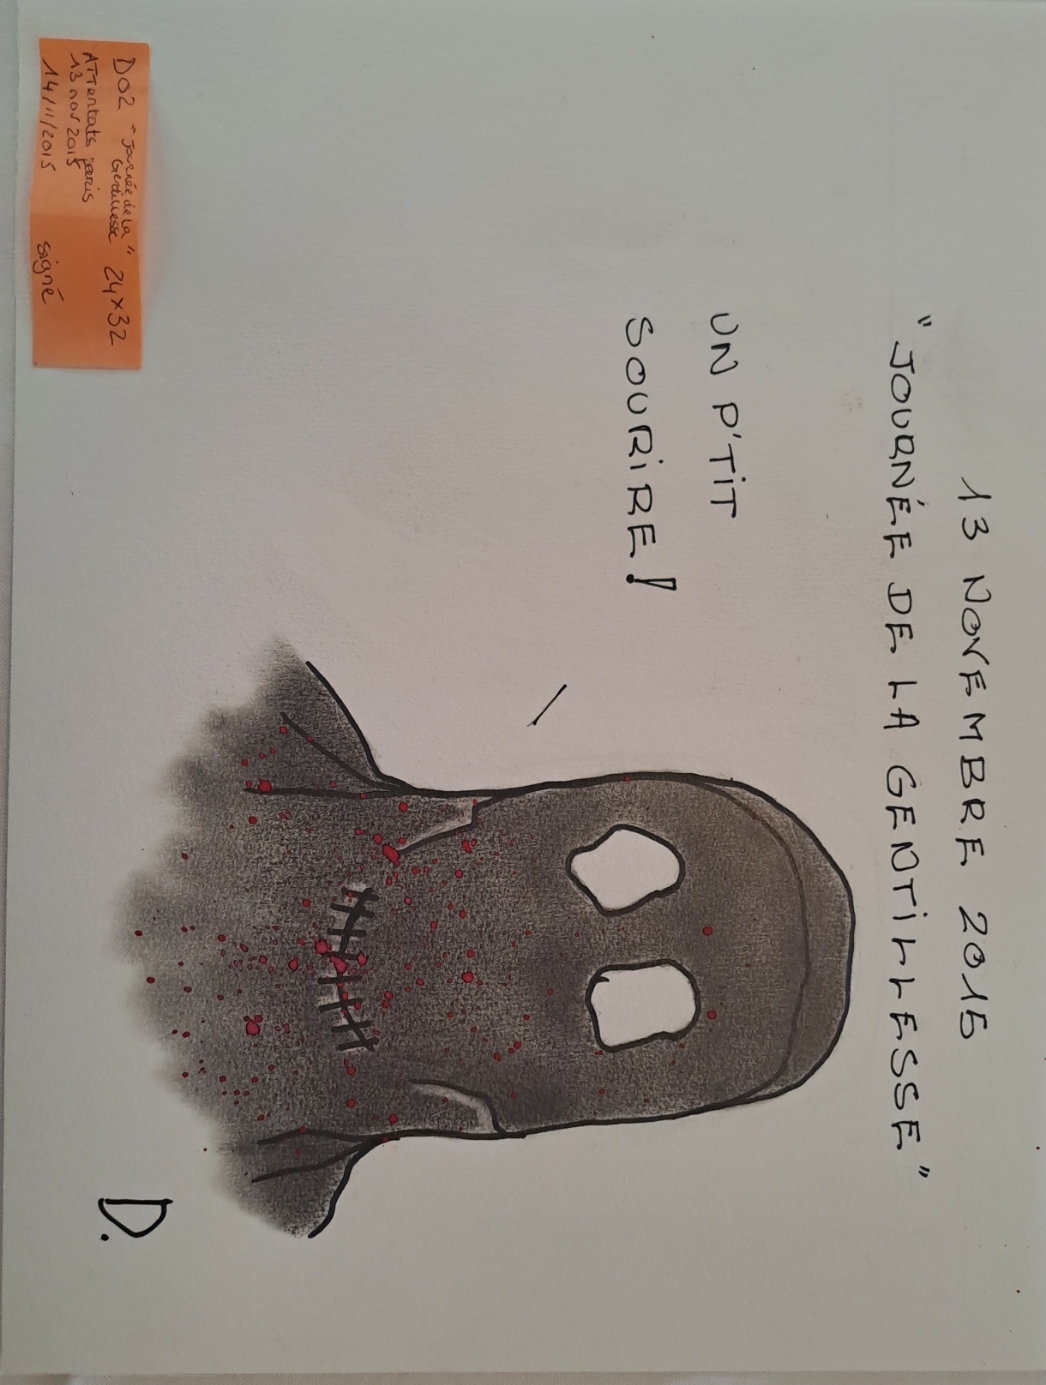 13 NOVEMBRE 2015
"JOURNÉE DE LA GENTiLLESSE"
UN P'TiT
SOURiRE!
D.
D02 "Journée de la Gentillesse" 24x32
ATTentats paris
13 nov 2015
14/11/2015 signé